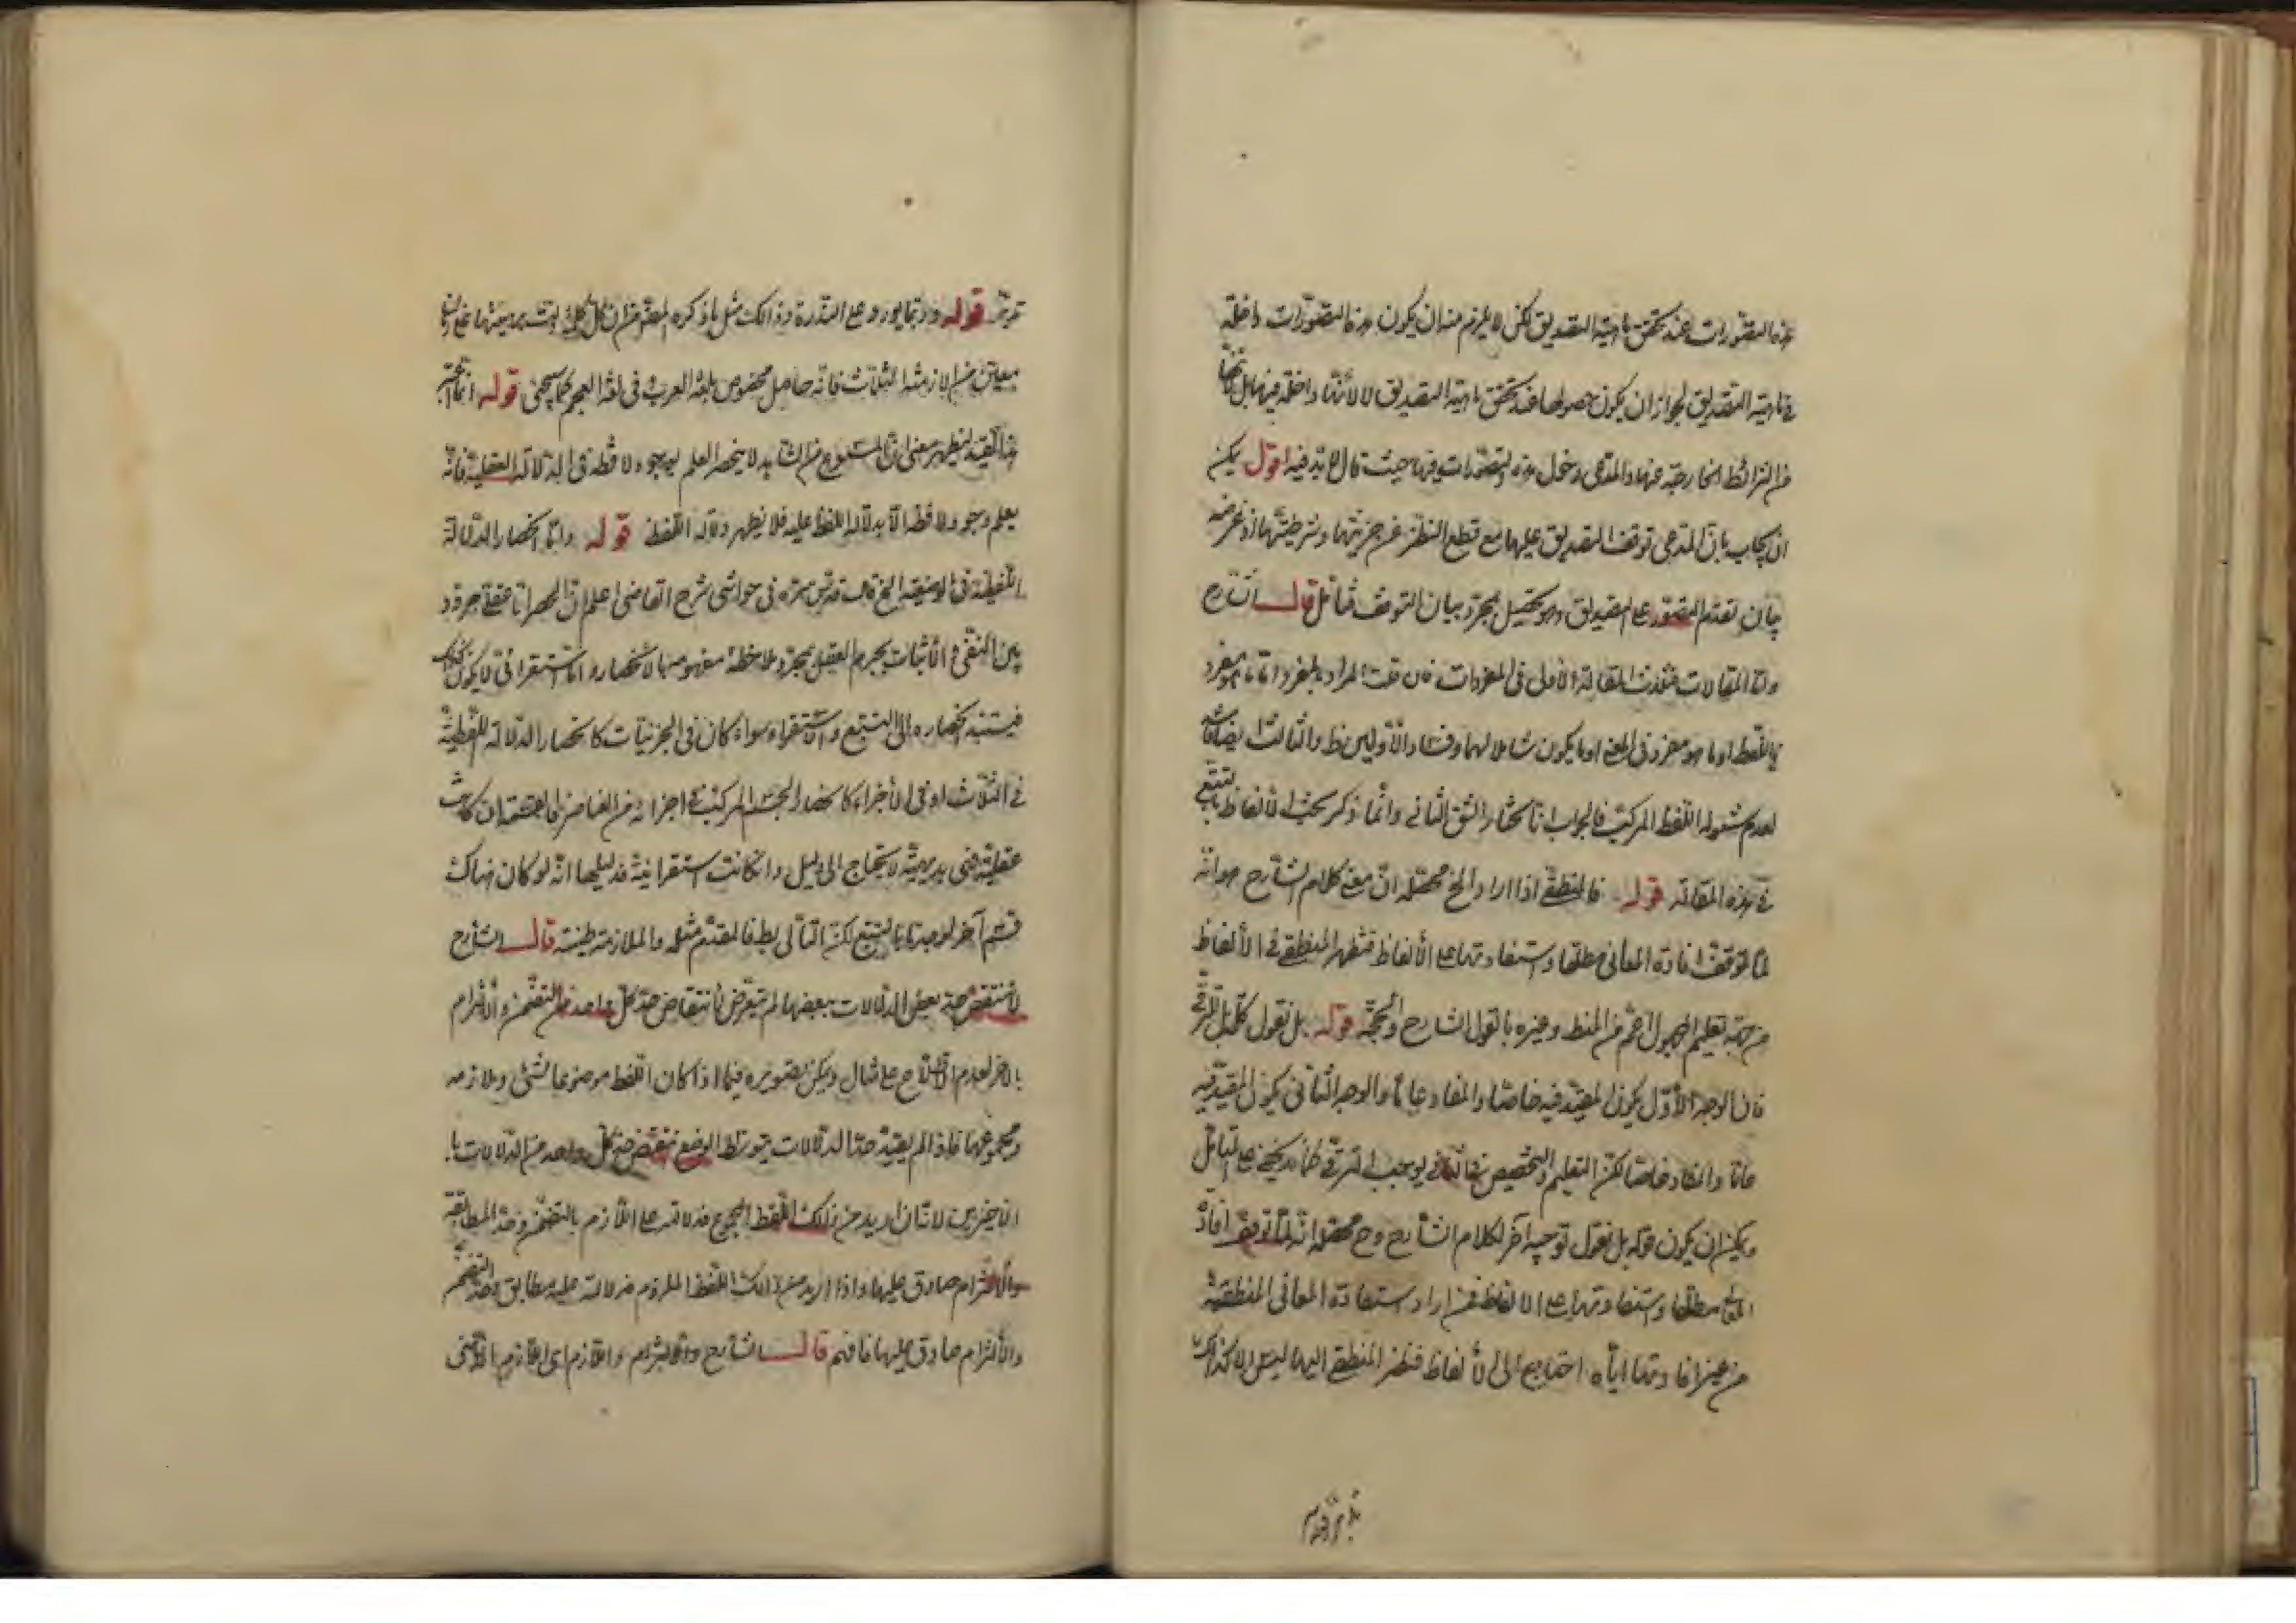 هذه التصورات عند تحقق ماهية التصديق لكن لا يلزم منه ان يكون هذه التصورات داخلة
في ماهية التصديق لجواز ان يكون حصولها عند تحقق ماهية التصديق لا لأنها داخلة فيها بل لأنها
من الشرائط الخارجة عنها والمدعى دخول هذه التصورات فيها حيث قال لا بد فيه اقول يمكن
ان يجاب بان المدعى توقف التصديق عليها مع قطع النظر عن جزئيتها وشرطيتها اذ غرضه
بيان تقدم التصور على التصديق وهو يحصل بمجرد بيان التوقف فتأمل قال الشارح
المقالات فثلث المقالة الأولى في المفردات فان قلت المراد بالمفرد اما ما هو مفرد
باللفظ او ما هو مفرد في المعنى او ما يكون شاملا لهما وفساد الأولين ظ والثالث ايضا
لعدم شموله اللفظ المركب فالجواب انا نختار الشق الثاني وانما ذكر بحث الألفاظ بالتبع
في هذه المقالة قوله فالمنطقي اذا اراد الخ محصله ان معنى كلام الشارح هو انه
لما توقف افادة المعاني مطلقا واستفادتها على الألفاظ فنظر المنطقي في الألفاظ
من جهة تعليم المجهول الأعم من المنطق وغيره بالقول الشارح والحجة قوله بل نقول كلمة بل للترقي
فان الوجه الأول يكون المقيد فيه خاصا والمفاد عاما والوجه الثاني يكون المقيد فيه
عاما والمفاد خاصا لكن التعليم والتخصيص في الثاني يوجب الترقي كما لا يخفى على المتأمل
ويمكن ان يكون قوله بل نقول توجيه آخر لكلام الشارح وح محصله انه لما توقف افادة
المعاني مطلقا واستفادتها على الالفاظ فمن اراد استفادة المعاني المنطقية
من غيره افادتها اياه احتاج الى الألفاظ فنظر المنطقي اليها ليس الا كذلك
قوله وربما يورد على الندرة وذلك مثل ما ذكره المص من ان كل كلمة
فانه حاصل مخصوص بلغة العرب في لغة العجم كما سيجئ قوله انما اعتبر
هذا القيد ليظهر معنى ان المسموع من المشاهد لا ينحصر العلم بوجود لافظه في الدلالة العقلية فانه
يعلم وجود لافظه الا بدلالة اللفظ عليه فلا يظهر دلالة اللفظ قوله وانما انحصار الدلالة
اللفظية في الوضعية الخ قال قدس سره في حواشي شرح القاضي اعلم ان الحصر اما عقلي
بين النفي والأثبات يجزم العقل بمجرد ملاحظة مفهومها بالانحصار واما استقرائي لا يكون كذلك
فيستند انحصاره الى التتبع والأستقراء سواء كان في الجزئيات كانحصار الدلالة اللفظية
في الثلاث او في الأجزاء كانحصار الجسد المركب في اجزائه من العناصر فالقسمة ان كانت
عقلية فهي بديهية لا تحتاج الى دليل وان كانت استقرائية فدليلها انه لو كان هناك
قسم آخر لوجدناه بالتتبع لكن التالي بط فالمقدم مثله والملازمة ظنية قال الشارح
لأنتقض حد بعض الدلالات ببعضها لم يتعرض لأنتقاض حد كل واحد من التضمن والألتزام
بالآخر لعدم الأطلاع على مثال ويمكن تصويره فيما اذا كان اللفظ موضوعا لشئ ولازمه
ومجموعهما فاذا لم يقيد حد الدلالات بتوسط الوضع ينتقض حد كل واحد من الدلالات
الاخيرين لانه ان اريد من ذلك اللفظ المجموع فدلالته على اللأزم بالتضمن وحد المطابقة
والألتزام صادق عليها واذا اريد من ذلك اللفظ الملزوم فدلالته عليه مطابق وحد التضمن
والألتزام صادق عليها فافهم قال الشارح والألتزام واللأزم اي اللأزم الذهني